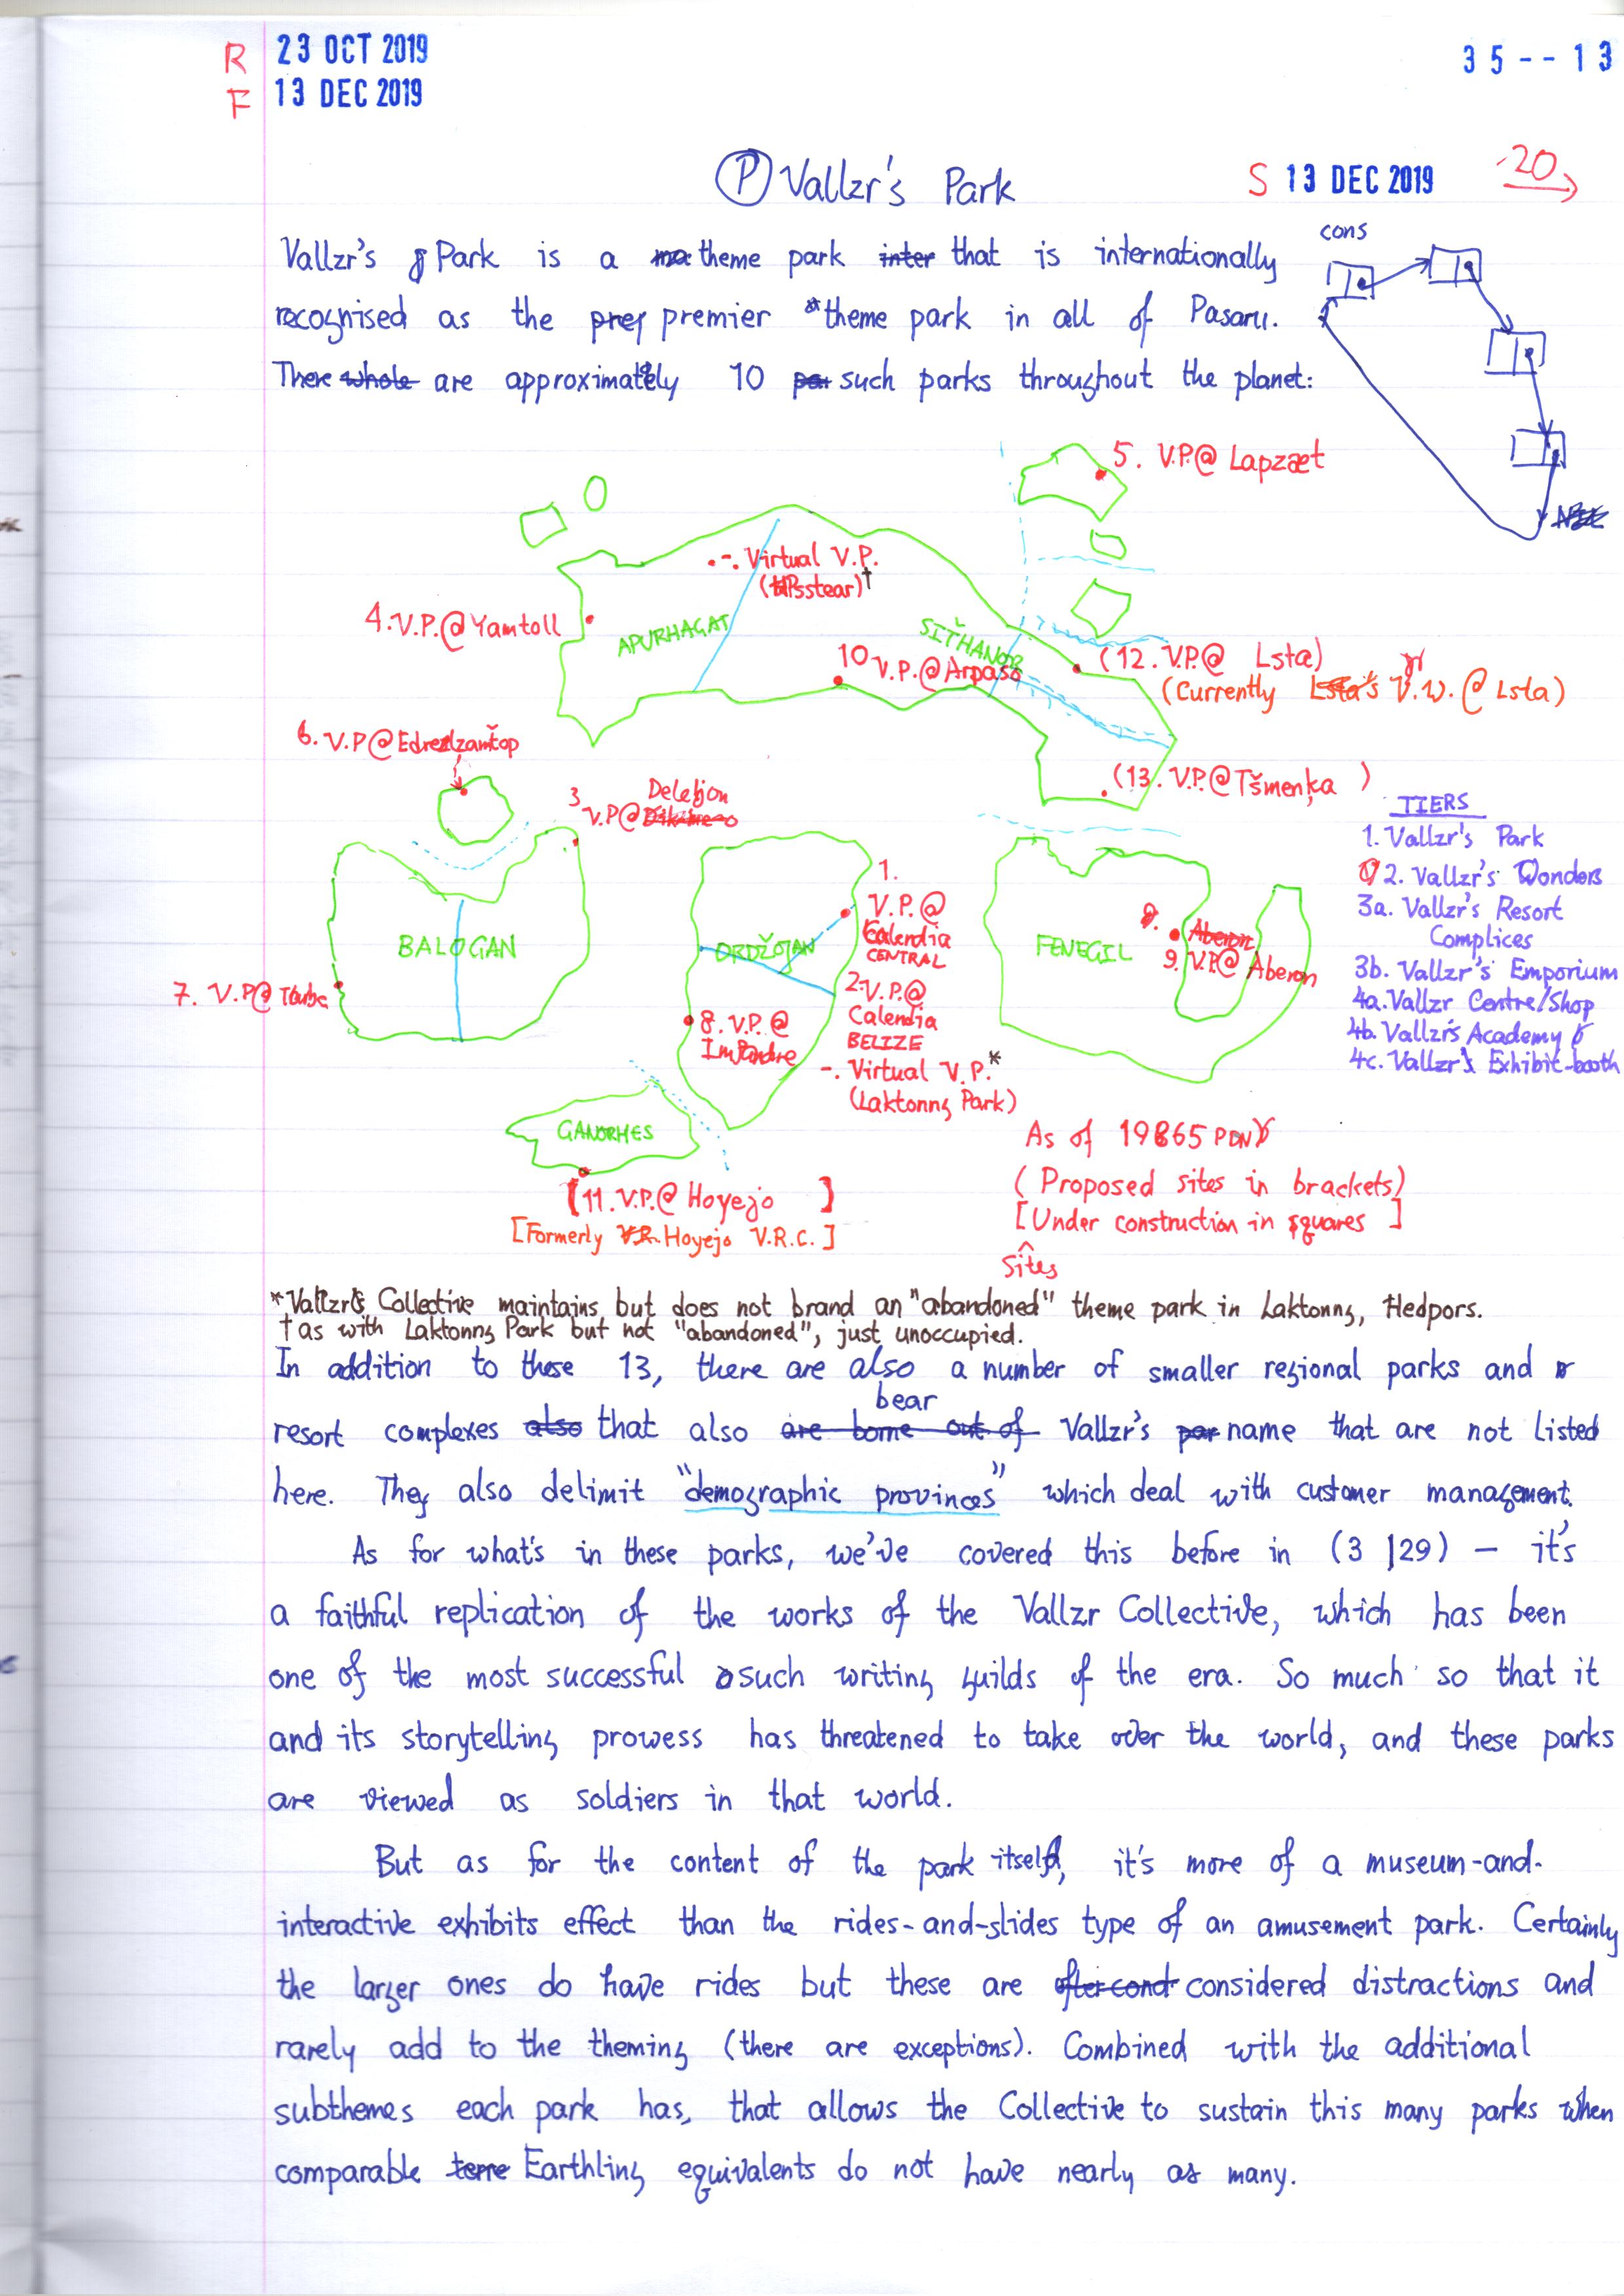 R 23 OCT 2019
F 13 DEC 2019
35--13
P Vallzr's Park
S 13 DEC 2019
20
Vallzr's Park is a theme park inter that is internationally
recognised as the premier *theme park in all of Pasaru.
There whole are approximately 10 such parks throughout the planet:
cons
5. V.P.@ Lapzæt
-. Virtual V.P.
4. V.P.@ Yamtoll
APURHAGAT
SIŤHANOR
10 V.P.@ Arpaso
(12. V.P.@ Lsta)
(Currently V.W.@ Lsta)
(13. V.P.@ Tšmenķa )
6. V.P@
3 Delebon
V.P@
BALOGAN
7. V.P@
ORDŽOJAN
1.
V.P.@
Calendia
CENTRAL
2. V.P.@
Calendia
BELIZE
-. Virtual V.P.*
(Laktonng Park)
8. V.P.@
FENEGIL
9. V.P.@ Aberon
GANORHES
[11. V.P.@ Hoyejo ]
[Formerly Hoyejo V.R.C.]
TIERS
1. Vallzr's Park
2. Vallzr's Wonders
3a. Vallzr's Resort
Complices
3b. Vallzr's Emporium
4a. Vallzr Centre/Shop
4b. Vallzr's Academy
4c. Vallzr's Exhibit-booth
As of 19865 PDN
(Proposed sites in brackets)
[Under construction in squares ]
Sites
*Vallzr's Collective maintains but does not brand an "abandoned" theme park in Laktonng, Hedpors.
† as with Laktonng Park but not "abandoned", just unoccupied.
In addition to these 13, there are also a number of smaller regional parks and
resort complexes also that also are borne out of bear Vallzr's name that are not listed
here. They also delimit "demographic provinces" which deal with customer management.
As for what's in these parks, we've covered this before in (3 |29) – it's
a faithful replication of the works of the Vallzr Collective, which has been
one of the most successful such writing guilds of the era. So much so that it
and its storytelling prowess has threatened to take over the world, and these parks
are viewed as soldiers in that world.
But as for the content of the park itself, it's more of a museum-and-
interactive exhibits effect than the rides-and-slides type of an amusement park. Certainly
the larger ones do have rides but these are considered distractions and
rarely add to the theming (there are exceptions). Combined with the additional
subthemes each park has, that allows the Collective to sustain this many parks when
comparable terre Earthling equivalents do not have nearly as many.